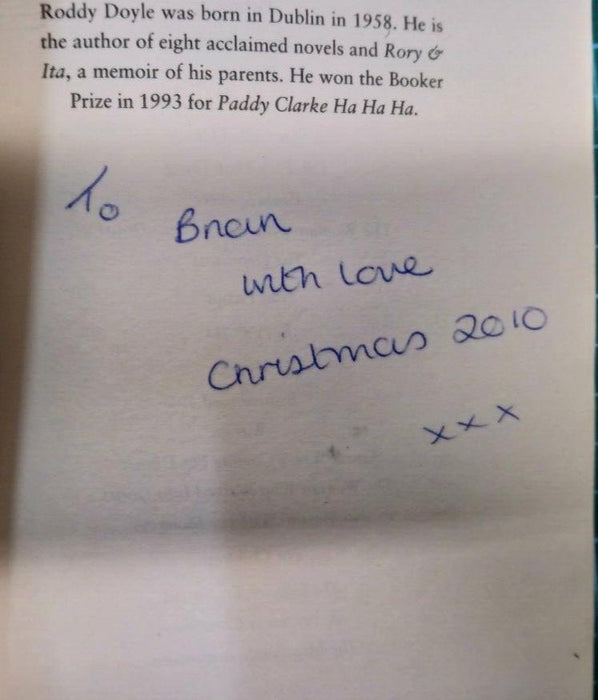 Roddy Doyle was born in Dublin in 1958. He is
the author of eight acclaimed novels and Rory &
Ita, a memoir of his parents. He won the Booker
Prize in 1993 for Paddy Clarke Ha Ha Ha.
To
Brian
with love
Christmas 2010
xxx